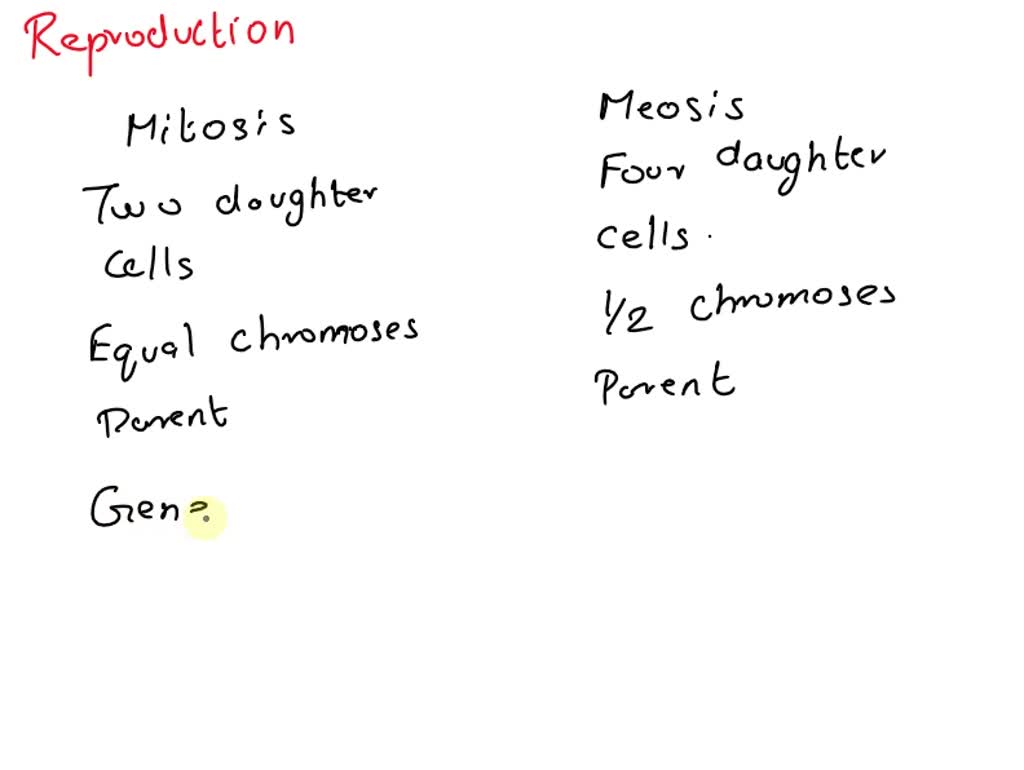 Reproduction
Mitosis
Two daughter
cells
Equal chromoses
Parent
Gene
Meosis
Four daughter
cells.
1/2 chromoses
Parent